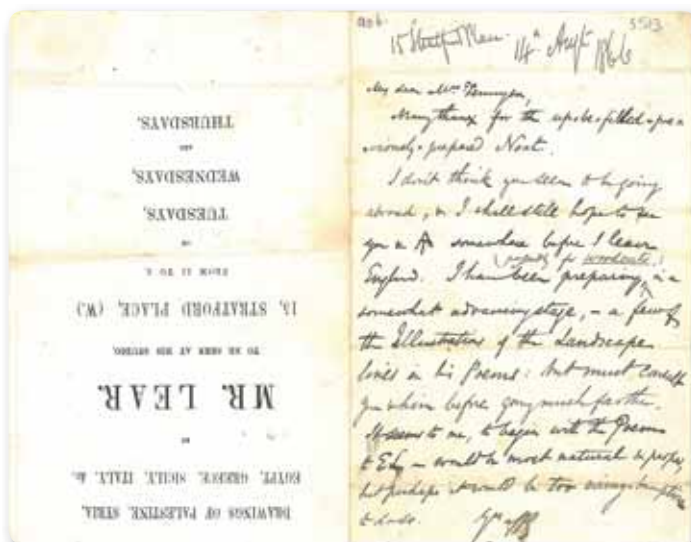 DRAWINGS OF PALESTINE, SYRIA,
EGYPT, GREECE, SICILY, ITALY, &c
BY
MR. LEAR.
TO BE SEEN AT HIS STUDIO,
15, STRATFORD PLACE, (W.)
FROM TO
ON
TUESDAYS,
WEDNESDAYS,
AND
THURSDAYS.
15 Stratford Place. 14th Augt 1866
My dear Mrs Tennyson,
Many thanx for the
prepared Note.
I don't think you seem to be going
abroad, so I shall still hope to see
you somewhere before I leave
for woodcuts,
England. I have been preparing in a
somewhat advancing stage, a few of
the Illustrations of the Landscape
lines in his Poems: but must consult
you & him before going much farther.
It seems to me, to begin with the Poems
to E.L. would be most natural & proper,
but perhaps it would be too
to do so.